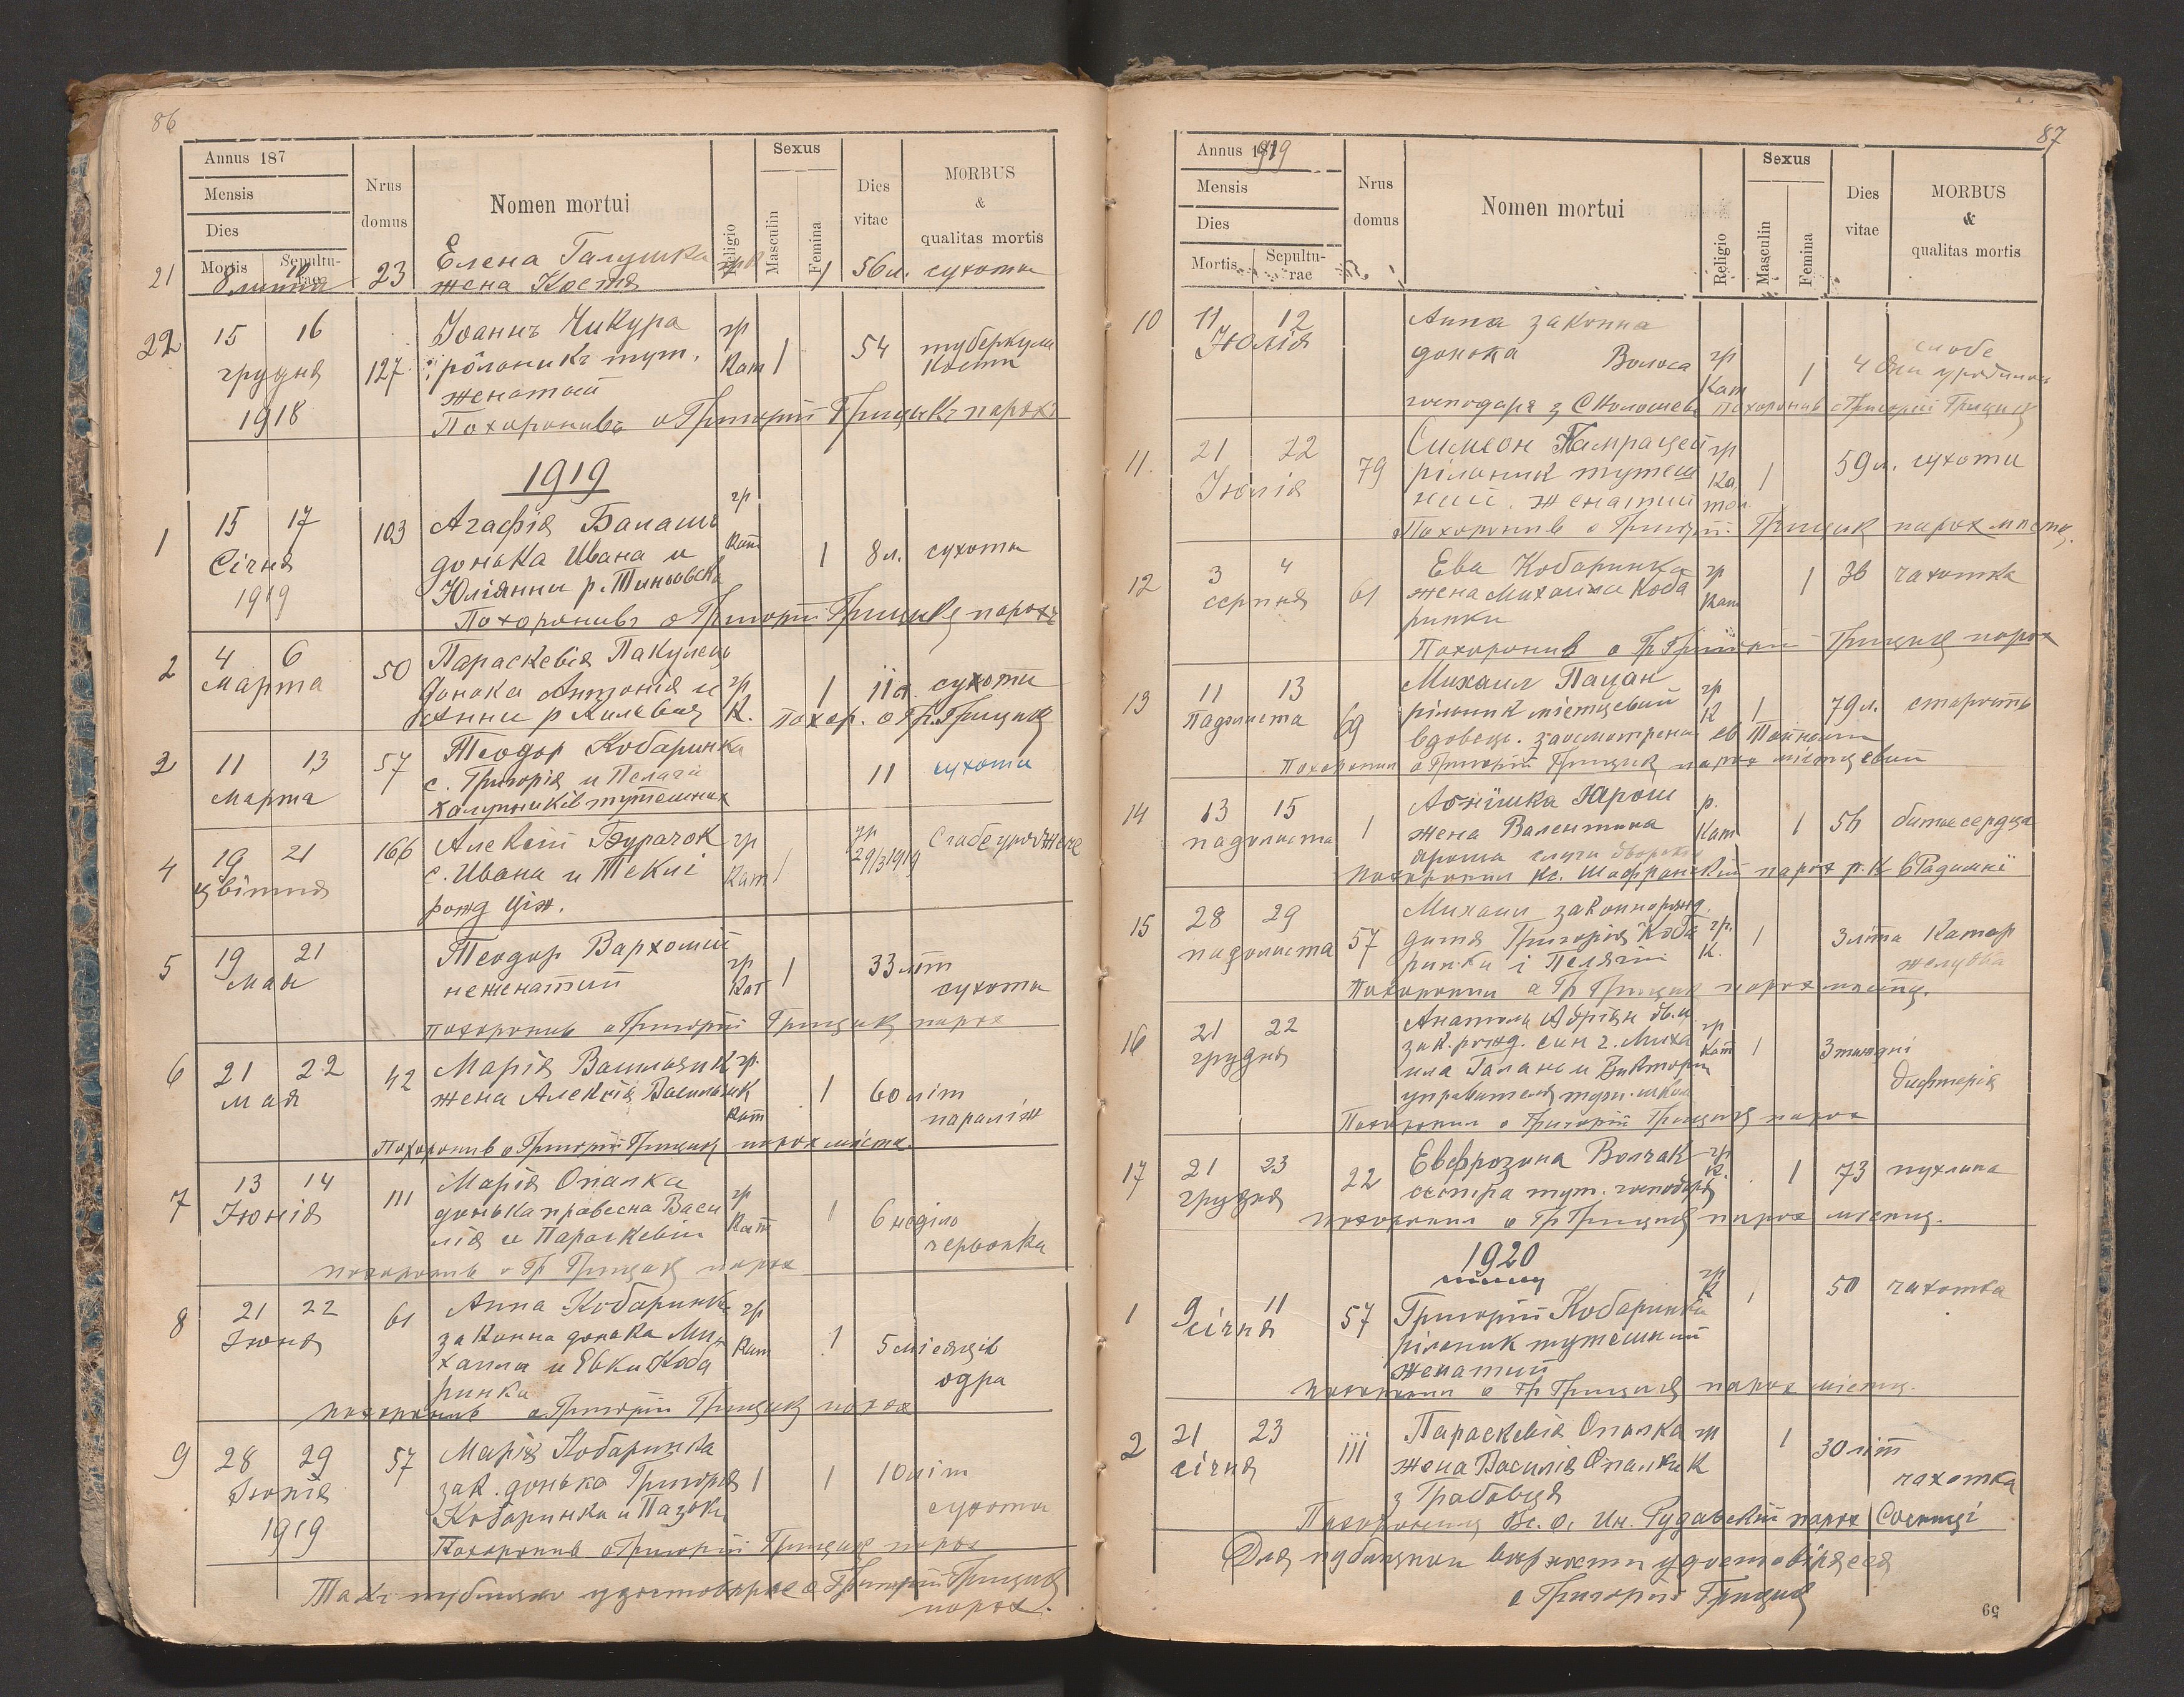 86
Annus 187
Mensis
Dies
Mortis Sepulturae
Nrus domus
Nomen mortui
Religio
Sexus
Masculin
Femina
Dies vitae
MORBUS & qualitas mortis
21 8 10 23 Елена Галушка 1 56 л. сухоти
жена Костя
22 15 16 127 Іоаннъ Чикура гр 1 54 туберкули
грудня рôльникъ тут. Кат кости
1918 женатый
Похоронивъ о Григорій Грицикъ парохъ
1919
1 15 17 103 Агафія Балаш гр 1 8 л. сухоти
Січня донька Ивана и Кат
1919 Юліянни р.
Похоронивъ о Григорій Грицик парохъ
2 4 6 50 Параскевія Пакулець
Марта донька Антонія и гр 1 11 л. сухоти
Анни р К. Похор. о Гр. Грицик
2 11 13 57 Теодор Кобаринка 11 сухоти
Марта с. Григорія и Пелагії
халупників тутешних
4 19 21 166 Алексій Бурачок гр 1 гр 29/3 1919 Слабе уроджене
цвітня с. Ивана и Теклі Кат
рожд Ціж.
5 19 21 Теодор Вархолий гр 1 33 літ
Мая неженатий Кат сухоти
похоронив о Григорій Грицик парох
6 21 22 42 Марія Васильчик гр. 1 60 літ
мая жена Алексія Васильчик Кат параліж
Похоронив о Григорій Грицик парох містц.
7 13 14 111 Марія Опалка гр 1 6 неділь
Іюнія донька правесна Васи Кат червонка
лія и Параскевії
похоронив о Гр Грицик парох
8 21 22 61 Анна Кобаринка гр 1 5 місяців
Іюня законна донька Ми Кат одра
хаила и Евки Коба
ринка
похоронив о Григорій Грицик парох
9 28 29 57 Марія Кобаринка 1 1 10 літ
Іюнія зак. донька Григорія сухоти
1919 Кобаринка и
Похоронив о Григорій Грицик парох
о Григорій Грицик
парох.
87
Annus 1919
Mensis
Dies
Mortis Sepulturae
Nrus domus
Nomen mortui
Religio
Sexus
Masculin
Femina
Dies vitae
MORBUS & qualitas mortis
10 11 12 Анна законна
Юлія донька Волоса гр 1 4 дни слабе
Кат
господаря з Похоронив о Григорій Грицик
11. 21 22 79 Симеон гр 1 59 л. сухоти
Іюлія рільник тутеш Ка
ний. женатий тол
Похоронив о Григорій Грицик парох містц.
12 3 4 61 Ева Кобаринка гр 1 36 чахотка
серпня жена Михаила Коба Кат
ринки
Похоронив о Гр Грицик парох
13 11 13 69 Михаил Пацан гр 1 79 л. старость
Падолиста рільник містцевий К
вдовець. заосмотрений св Тайнами
Похоронил о Григорій Грицик парох містцевий
14 13 15 1 Агнішка Ярош р. 1 56 битье сердца
падолиста жена Валентина Кат
Яроша слуги двор
похоронил Кс. парох р. К в Радимні
15 28 29 57 Михаил законнорожд. 1 3 літа Катар
падолиста дитя Григорія Коба гр. желудка
ринки і Пелягії К.
Похоронил о Гр Грицик парох містц.
16 21 22 Анатоль Адріян дв. и гр 1 3 тижднї
грудня зак. рожд. син г. Миха Кат дифтерія
ила Галань и Виктории
управителя тут. школи
Похоронил о Григорій Грицик парох
17 21 23 22 Евфрозина Волчак гр 1 73 пухлина
грудня сестра тут. господаря К.
похоронил о Гр Грицик парох містц.
1920
1 9 11 57 Григорій Кобаринка гр К 1 50 чахотка
січня рільник тутешний
женатий
похоронил о Гр Грицик парох містц.
2 21 23 111 Параскевія Опалка гр 1 30 літ
січня жена Василія Опалки К чахотка
з Грабовця
Похоронив Вс. о. Ин. Рудавский парох Сосниці
Для публицной вирности удостовіряєся
о Григорій Грицик
59